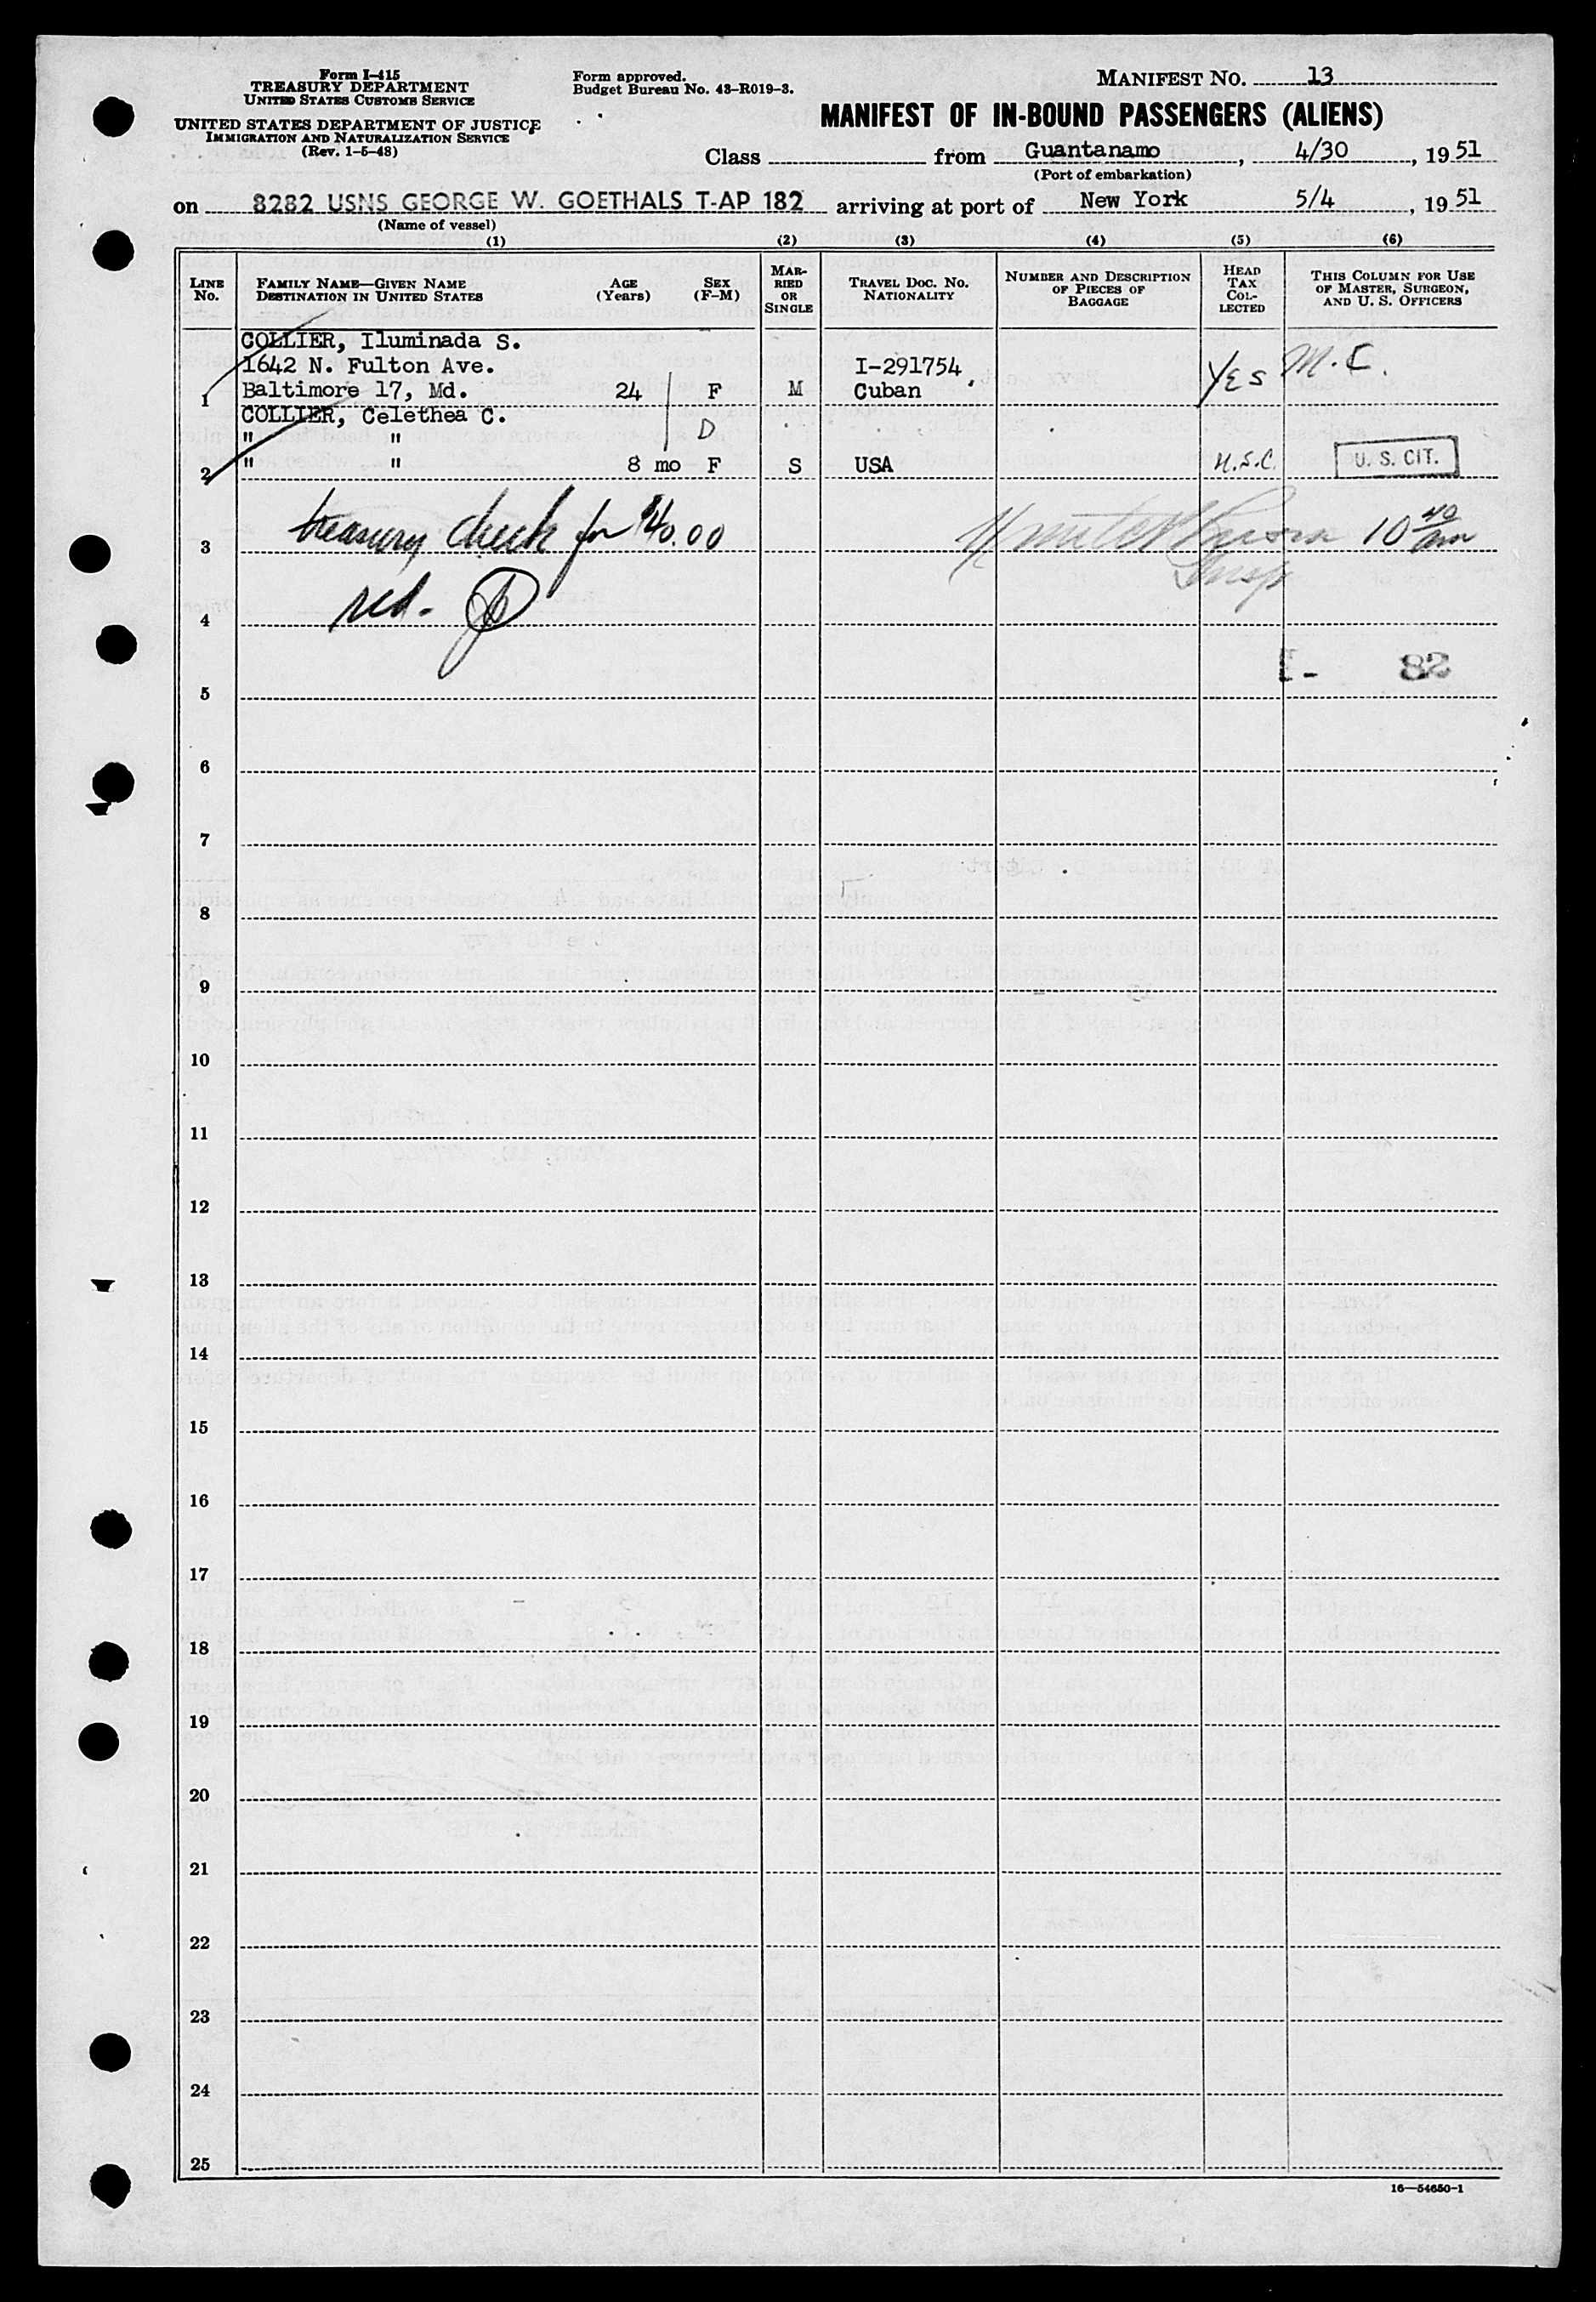 Form I-415
TREASURY DEPARTMENT
UNITED STATES CUSTOMS SERVICE
UNITED STATES DEPARTMENT OF JUSTICE
IMMIGRATION AND NATURALIZATION SERVICE
(Rev. 1-5-48)
Form approved.
Budget Bureau No. 43-R019-3.
MANIFEST NO. 13
MANIFEST OF IN-BOUND PASSENGERS (ALIENS)
Class from Guantanamo, 4/30, 1951
(Port of embarkation)
on 8282 USNS GEORGE W. GOETHALS T-AP 182 arriving at port of New York 5/4, 1951
(Name of vessel)
(1) (2) (3) (4) (5) (6)
LINE No.
FAMILY NAME—GIVEN NAME
DESTINATION IN UNITED STATES
AGE
(Years)
SEX
(F-M)
MARRIED OR SINGLE
TRAVEL DOC. NO.
NATIONALITY
NUMBER AND DESCRIPTION
OF PIECES OF
BAGGAGE
HEAD TAX COLLECTED
THIS COLUMN FOR USE
OF MASTER, SURGEON,
AND U. S. OFFICERS
COLLIER, Iluminada S.
1642 N. Fulton Ave. I-291754
1 Baltimore 17, Md. 24 F M Cuban Yes M.C.
COLLIER, Celethea C.
" " D
2 " " 8 mo F S USA U.S.C. U. S. CIT.
3 treasury check for $40.00 10 40 am
Insp
4 rcd.
- 82
5
6
7
8
9
10
11
12
13
14
15
16
17
18
19
20
21
22
23
24
25
16—54650-1